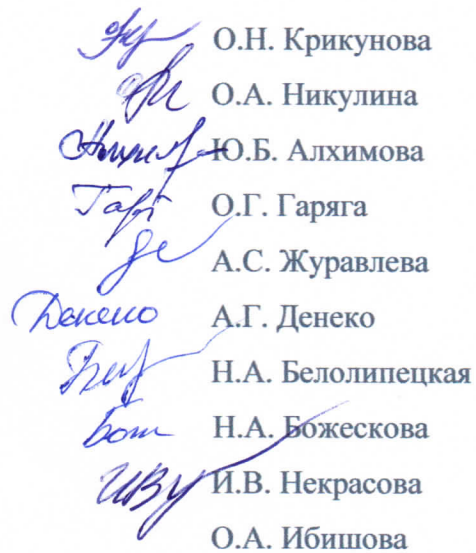 О.Н. Крикунова
О.А. Никулина
Ю.Б. Алхимова
О.Г. Гаряга
А.С. Журавлева
Денеко А.Г. Денеко
Н.А. Белолипецкая
Н.А. Божескова
И.В. Некрасова
О.А. Ибишова